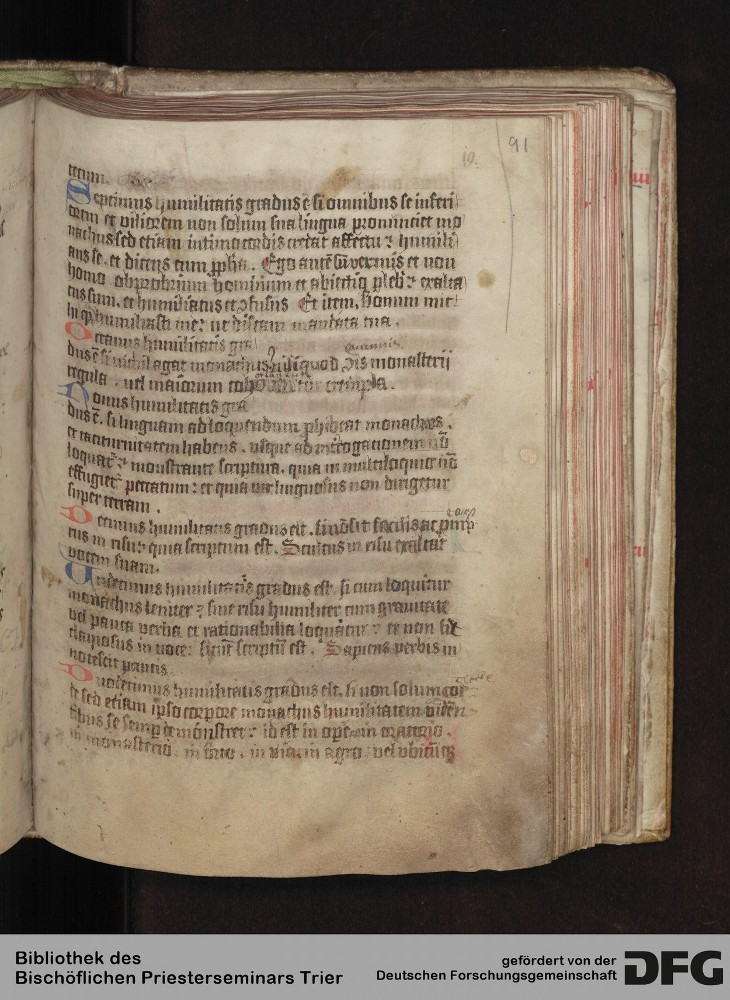 10. 91
tecum.
Septimus humilitatis gradus ē si omnibus se inferi
orem et viliorem non solum sua lingua pronunciet mo
nachus sed etiam intimo cordis credat affectu & humili
ans se. et dicens cum ꝓpha. Ego autē sū vermis et non
homo obprobrium hominum et abiectio plebis exalta
tus sum. et humiliatus et ꝯfusus Et item. Bonum mic
hi qꝫ humiliasti me: ut discam mandata tua.
Octauus humilitatis gra
communis
dus ē si nichil agat monachus nisi quod monasterij
regula. vel maiorum exempla.
Nonus humilitatis gra
dus ē. si linguam ad loquendum ꝓhibeat monachus.
et taciturnitatem habens. usque ad interrogationem nō
loquat᷑ monstrante scriptura. quia in multiloquio nō
effugiet᷑ peccatum: et quia vir linguosus non dirigetur
super terram.
Decimus humilitatis gradus est. si non sit facilis ac promp
tus in risu: quia scriptum est. Stultus in risu exaltat
vocem suam.
Undecimus humilitatis gradus est. si cum loquitur
monachus leniter & sine risu humiliter cum grauitate
vel pauca verba et rationabilia loquatur & et non sit
clamosus in uoce: sicut scriptū est. Sapiens verbis in
notescit paucis
Duodecimus humilitatis gradus est. si non solum cor
de sed etiam ipso corpore monachus humilitatem viden
tibus se semp demonstret: id est in opere in oratorio.
in monasterio. in orto. in via. in agro. vel ubicūqꝫ
Bibliothek des
Bischöflichen Priesterseminars Trier
gefördert von der
Deutschen Forschungsgemeinschaft DFG